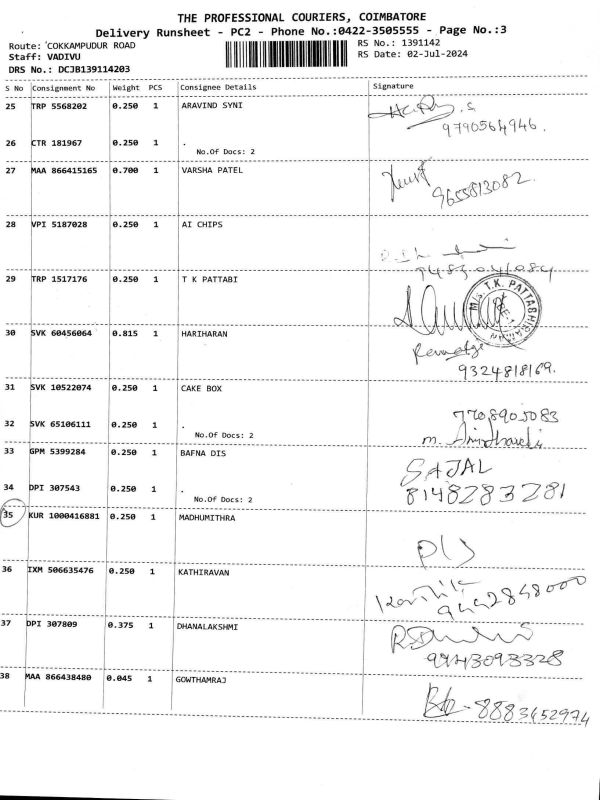 THE PROFESSIONAL COURIERS, COIMBATORE
Delivery Runsheet - PC2 - Phone No.:0422-3505555 - Page No.:3
Route: COKKAMPUDUR ROAD
RS No.: 1391142
Staff: VADIVU
RS Date: 02-Jul-2024
DRS No.: DCJB139114203
S No Consignment No Weight PCS Consignee Details Signature
25 TRP 5568202 0.250 1 ARAVIND SYNI
9790564946.
26 CTR 181967 0.250 1 .
No.Of Docs: 2
27 MAA 866415165 0.700 1 VARSHA PATEL
9655813082.
28 VPI 5187028 0.250 1 AI CHIPS
29 TRP 1517176 0.250 1 T K PATTABI
M/s. T.K. PATTABHIRAMAN
30 SVK 60456064 0.815 1 HARIHARAN
9324818169.
31 SVK 10522074 0.250 1 CAKE BOX
7708905083
32 SVK 65106111 0.250 1 .
No.Of Docs: 2
33 GPM 5399284 0.250 1 BAFNA DIS
SAJAL
34 DPI 307543 0.250 1 .
8148283281
No.Of Docs: 2
35 KUR 1000416881 0.250 1 MADHUMITHRA
36 IXM 506635476 0.250 1 KATHIRAVAN
37 DPI 307809 0.375 1 DHANALAKSHMI
9943093328
38 MAA 866438480 0.045 1 GOWTHAMRAJ
8883452974